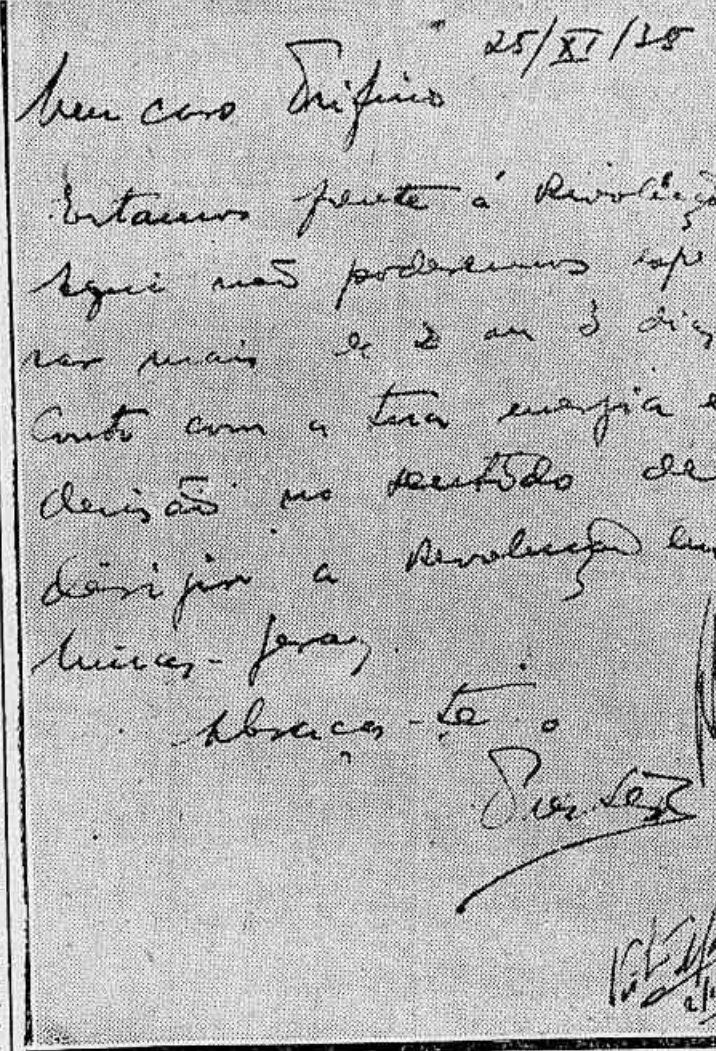 25/XI/35
Meu caro Trifino
Estamos frente á Revolução
Aqui não poderemos espe
rar mais de 2 ou 3 dias
Conto com a tua energia e
decisão no sentido de
dirigir a Revolução em
Minas-Geraes.
Abraça-te o
Prestes